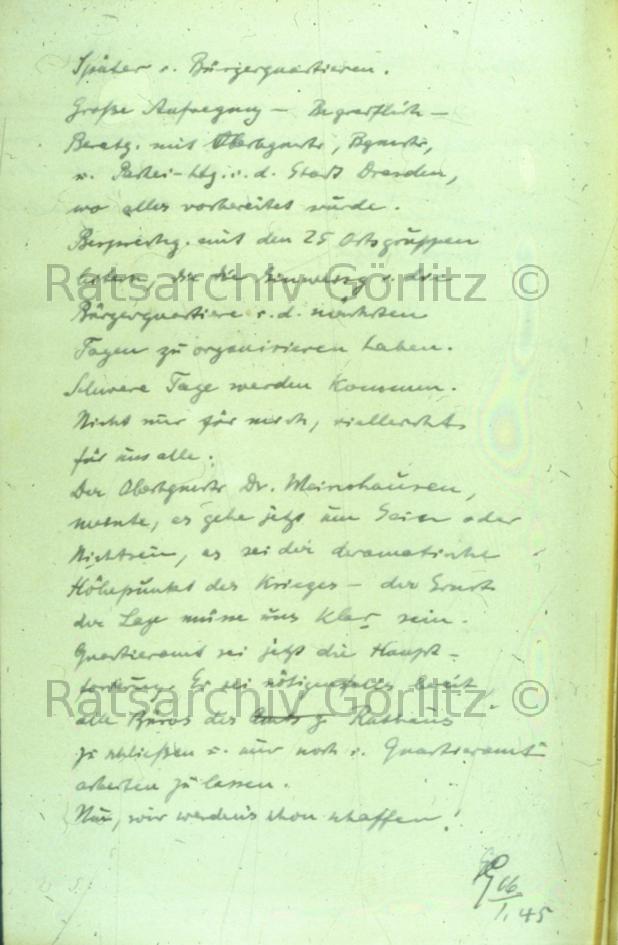 Später i. Bürgerquartieren.
Große Aufregung – Begreiflich –
Beratg. mit Oberbgmstr, Bgmstr,
u. Partei-Ltg. i. d. Stadt Dresden,
wo alles vorbereitet wurde.
Besprechg. mit den 25 Ortsgruppen
die die Einweisg i. die
Ratsarchiv Görlitz ©
Bürgerquartiere i. d. nächsten
Tagen zu organisieren haben.
Schwere Tage werden kommen.
Nicht nur für mich, vielleicht
für uns alle.
Der Oberbgmstr Dr. Meinshausen,
meinte, es gehe jetzt um Sein oder
Nichtsein, es sei der dramatische
Höhepunkt des Krieges – der Ernst
der Lage müsse uns klar sein.
Quartieramt sei jetzt die Haupt-
forderung. Er sei nötigenfalls bereit
Ratsarchiv Görlitz ©
alle Büros des Rathaus
zu schließen u. nur noch i. Quartieramt
arbeiten zu lassen.
Nun, wir werden's schon schaffen!
06
1.45